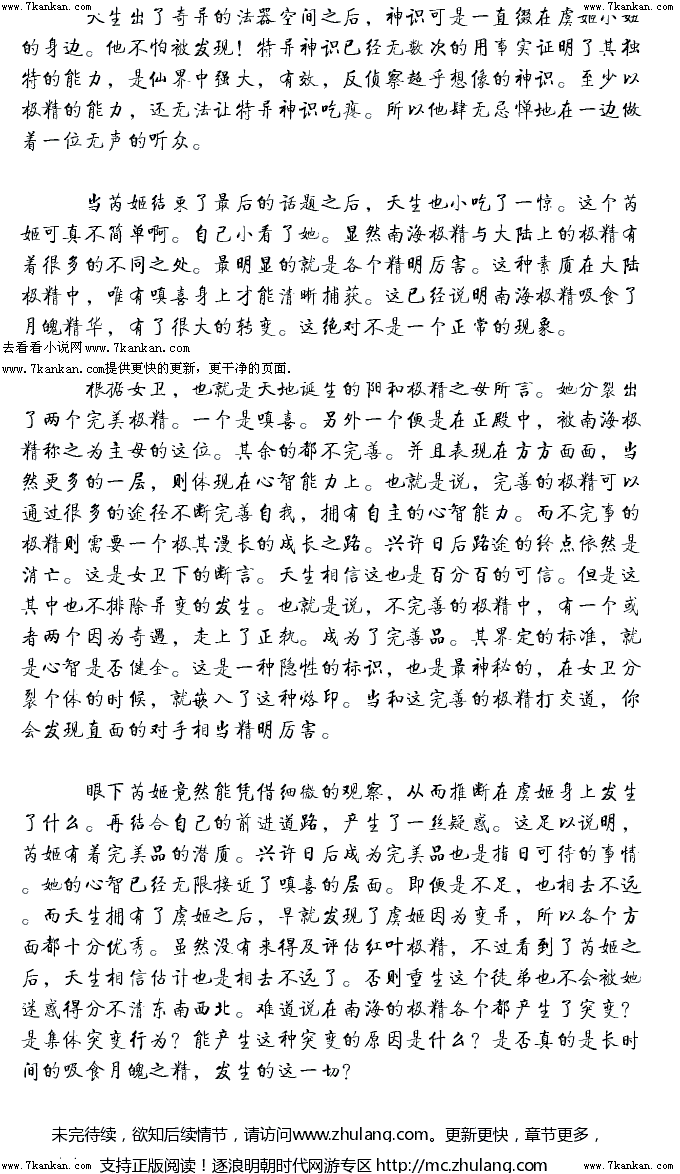 www.7kankan.com www.7kankan.com www.7kankan.com
天生出了奇异的法器空间之后，神识可是一直缀在虞姬小姐
的身边。他不怕被发现！特异神识已经无数次的用事实证明了其独
特的能力，是仙界中强大，有效，反侦察超乎想像的神识。至少以
极精的能力，还无法让特异神识吃瘪。所以他肆无忌惮地在一边做
着一位无声的听众。
当芮姬结束了最后的话题之后，天生也小吃了一惊。这个芮
姬可真不简单啊。自己小看了她。显然南海极精与大陆上的极精有
着很多的不同之处。最明显的就是各个精明厉害。这种素质在大陆
极精中，唯有嗔喜身上才能清晰捕获。这已经说明南海极精吸食了
月魄精华，有了很大的转变。这绝对不是一个正常的现象。
去看看小说网www.7kankan.com
www.7kankan.com提供更快的更新，更干净的页面.
根据女卫，也就是天地诞生的阳和极精之母所言。她分裂出
了两个完美极精。一个是嗔喜。另外一个便是在正殿中，被南海极
精称之为主母的这位。其余的都不完善。并且表现在方方面面，当
然更多的一层，则体现在心智能力上。也就是说，完善的极精可以
通过很多的途径不断完善自我，拥有自主的心智能力。而不完事的
极精则需要一个极其漫长的成长之路。兴许日后路途的终点依然是
消亡。这是女卫下的断言。天生相信这也是百分百的可信。但是这
其中也不排除异变的发生。也就是说，不完善的极精中，有一个或
者两个因为奇遇，走上了正轨。成为了完善品。其界定的标准，就
是心智是否健全。这是一种隐性的标识，也是最神秘的，在女卫分
裂个体的时候，就嵌入了这种烙印。当和这完善的极精打交道，你
会发现直面的对手相当精明厉害。
眼下芮姬竟然能凭借细微的观察，从而推断在虞姬身上发生
了什么。再结合自己的前进道路，产生了一丝疑惑。这足以说明，
芮姬有着完美品的潜质。兴许日后成为完美品也是指日可待的事情
。她的心智已经无限接近了嗔喜的层面。即便是不足，也相去不远
。而天生拥有了虞姬之后，早就发现了虞姬因为变异，所以各个方
面都十分优秀。虽然没有来得及评估红叶极精，不过看到了芮姬之
后，天生相信估计也是相去不远了。否则重生这个徒弟也不会被她
迷惑得分不清东南西北。难道说在南海的极精各个都产生了突变？
是集体突变行为？能产生这种突变的原因是什么？是否真的是长时
间的吸食月魄之精，发生的这一切？
未完待续，欲知后续情节，请访问www.zhulang.com。更新更快，章节更多，
支持正版阅读！逐浪明朝时代网游专区 http://mc.zhulang.com
www.7kankan.com www.7kankan.com www.7kankan.com